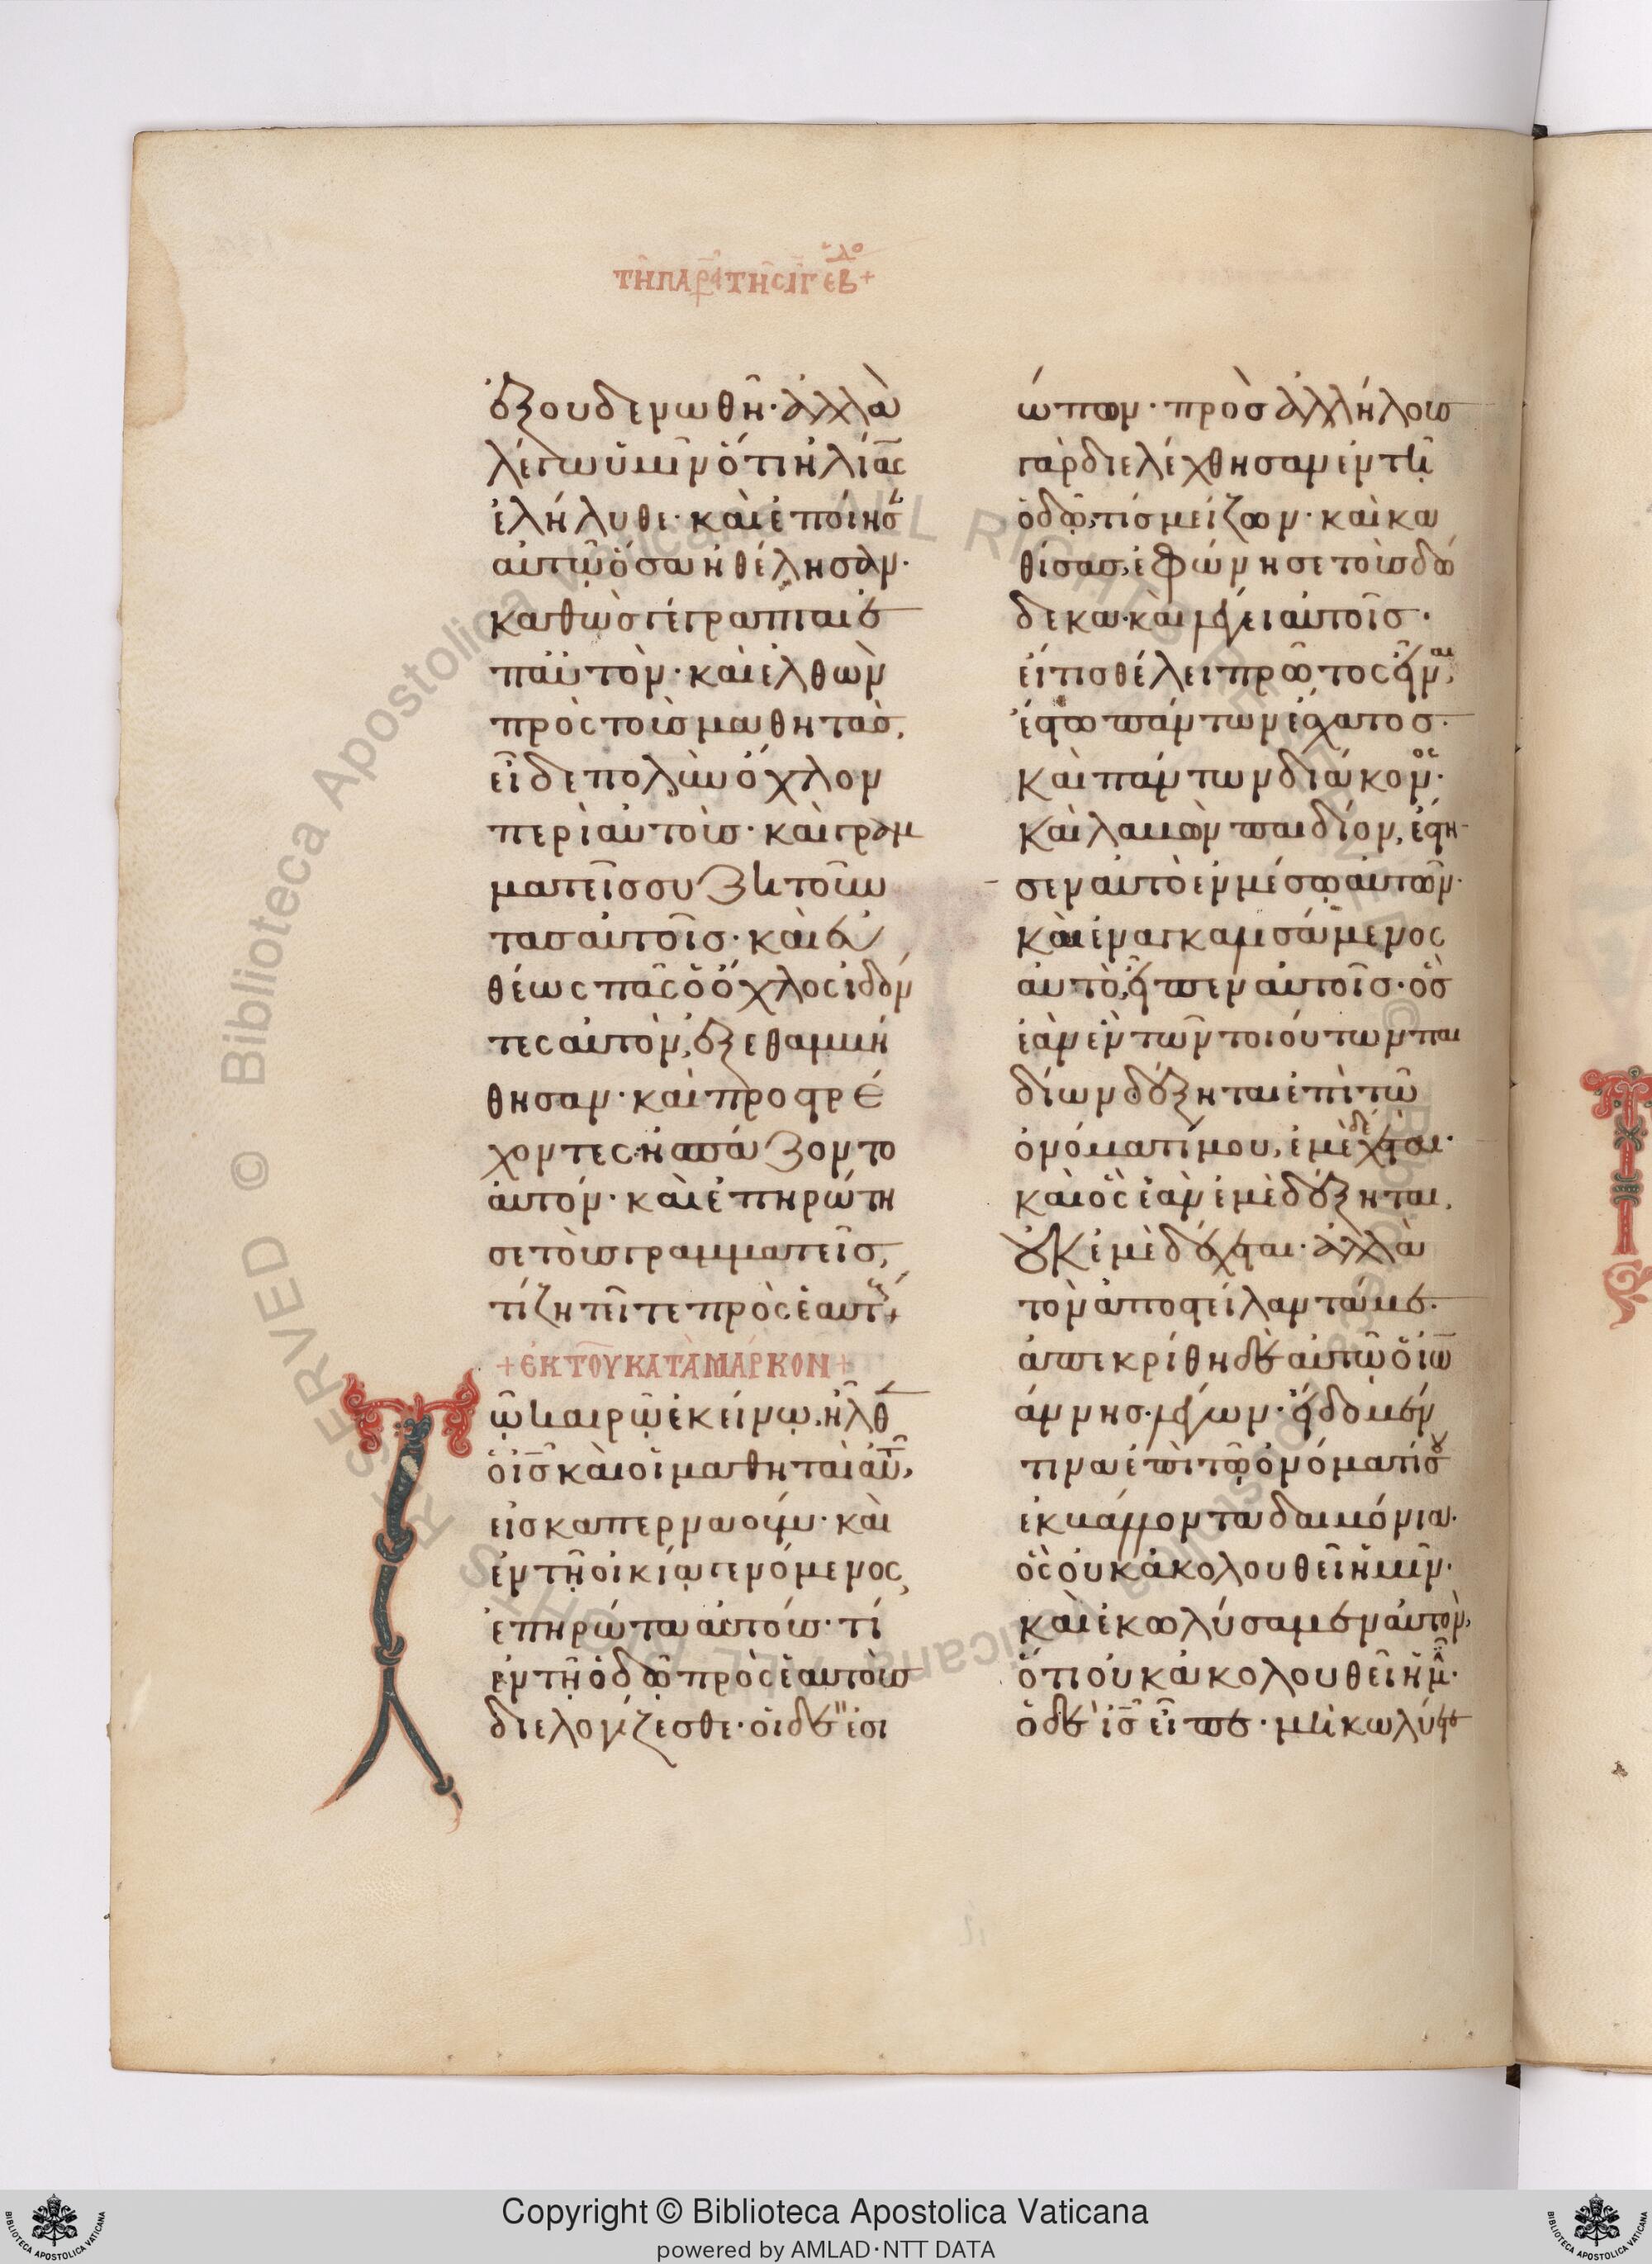 τῆ παρ τῆς ιγ εβ +
ἐξουδενωθῆ· ἀλλὰ
λέγω ὑμῖν ὅτι ἠλίας
ἐλήλυθε· καὶ ἐποίησ
αὐτῷ ὅσα ἠθέλησαν·
καθὼς γέγραπται ἐ
π αὐτὸν· καὶ ἐλθὼν
πρὸς τοὺς μαθητὰς,
εἶδε πολὺν ὄχλον
περὶ αὐτοὺς· καὶ γραμ
ματεῖς συζητοῦν
τας αὐτοῖς· καὶ εὐ
θέως πᾶς ὁ ὄχλος ἰδόν
τες αὐτὸν, ἐξεθαμβή
θησαν· καὶ προστρέ
χοντες· ἠσπάζοντο
αὐτόν· καὶ ἐπηρώτη
σε τοὺς γραμματεῖς,
τί ζητεῖτε πρὸς ἑαυτ +
+ ἐκ τοῦ κατὰ μάρκον +
Τῶ καιρῷ ἐκείνῳ, ἦλθ
ὁ ις καὶ οἱ μαθηταὶ αὐτ,
εἰς καπερναούμ· καὶ
ἐν τῇ οἰκίᾳ γενόμενος,
ἐπηρώτα αὐτούς· τί
ἐν τῇ ὁδῷ πρὸς ἑαυτοὺς
διελογίζεσθε· οἱ δὲ ἐσι
ώπων· πρὸς ἀλλήλους
γὰρ διελέχθησαν ἐν τῇ
ὁδῷ, τίς μείζων· καὶ κα
θίσας, ἐφώνησε τοὺς δώ
δεκα· καὶ λέγει αὐτοῖς·
εἴ τις θέλει πρῶτος εἶναι,
ἔστω πάντων ἔσχατος·
καὶ πάντων διάκονος·
καὶ λαβὼν παιδίον, ἔστη
σεν αὐτὸ ἐν μέσῳ αὐτῶν·
καὶ ἐναγκαλισάμενος
αὐτὸ, εἶπεν αὐτοῖς· ὃς
ἐὰν ἓν τῶν τοιούτων παι
δίων δέξηται ἐπὶ τῶ
ὀνόματί μου, ἐμὲ δέχεται·
καὶ ὃς ἐὰν ἐμὲ δέξηται,
οὐκ ἐμὲ δέχεται· ἀλλὰ
τὸν ἀποστείλαντά με·
ἀπεκρίθη δὲ αὐτῷ ὁ ἰω
άννης· λέγων· εἴδομέν
τινα ἐπὶ τῷ ὀνόματί σου
ἐκβάλλοντα δαιμόνια·
ὃς οὐκ ἀκολουθεῖ ἡμῖν·
καὶ ἐκωλύσαμεν αὐτὸν,
ὅτι οὐκ ἀκολουθεῖ ἡμῖν·
ὁ δὲ ις εἶπε· μὴ κωλύετε
Copyright © Biblioteca Apostolica Vaticana
powered by AMLAD·NTT DATA